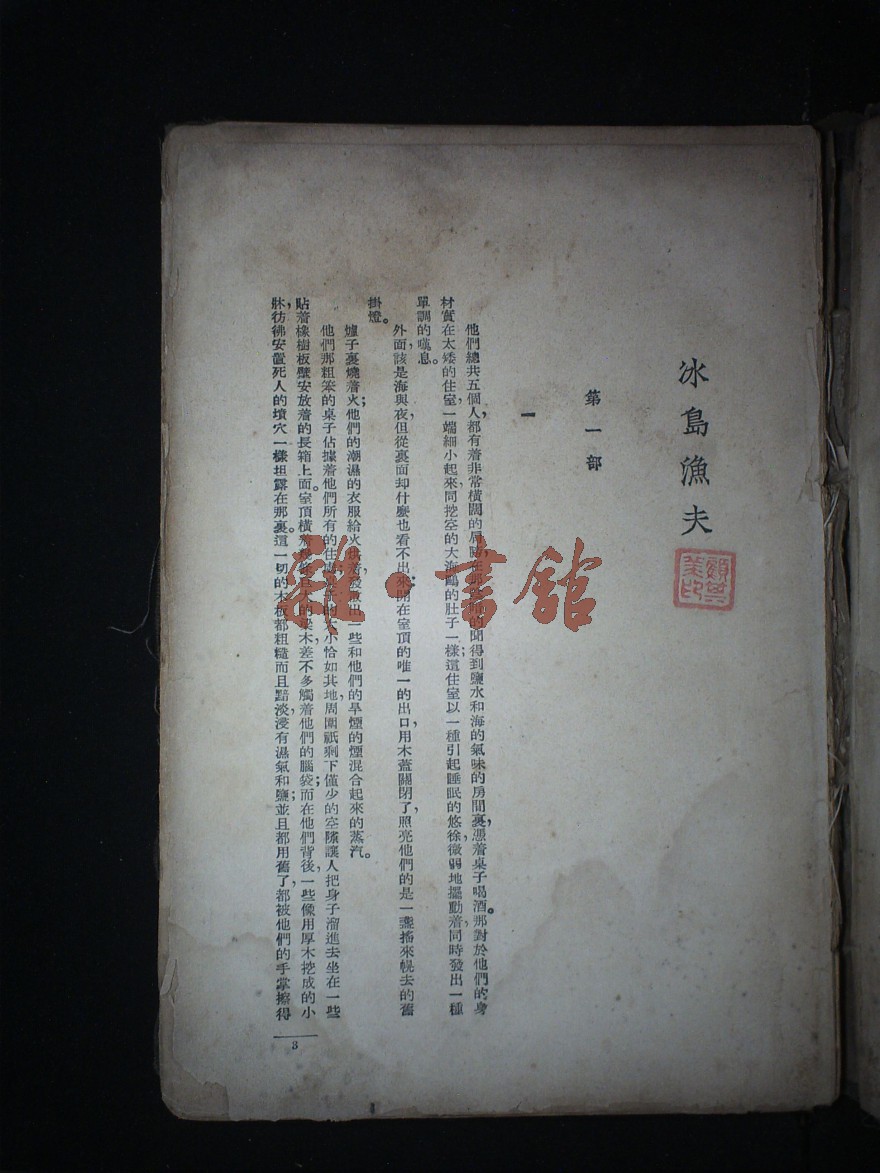 冰島漁夫
第一部
一
他們總共五個人，都有着非常橫闊的肩膀，在那的聞得到鹽水和海的氣味的房間裏，憑着桌子喝酒。那對於他們的身
材實在太矮的住室，一端細小起來，同挖空的大海鷗的肚子一樣；這住室以一種引起睡眠的悠徐，微弱地擺動着，同時發出一種
單調的嘆息。
外面，該是海與夜，但從裏面却什麼也看不出來；開在室頂的唯一的出口，用木蓋關閉了，照亮他們的是一盞搖來幌去的舊
掛燈。
爐子裏燒着火；他們的潮濕的衣服給火烘着，發散出一些和他們的旱煙的煙混合起來的蒸汽。
他們那粗笨的桌子佔據着他們所有的住處；桌子的大小恰如其地，周圍祇剩下僅少的空隙，讓人把身子溜進去坐在一些
貼着橡樹板壁安放着的長箱上面。室頂橫着巨大的梁木，差不多觸着他們的腦袋；而在他們背後，一些像用厚木挖成的小
牀，彷彿安置死人的墳穴一樣坦露在那裏。這一切的木板都粗糙而且黯淡，浸有濕氣和鹽；並且都用舊了，都被他們的手掌擦得
3
雜·書館